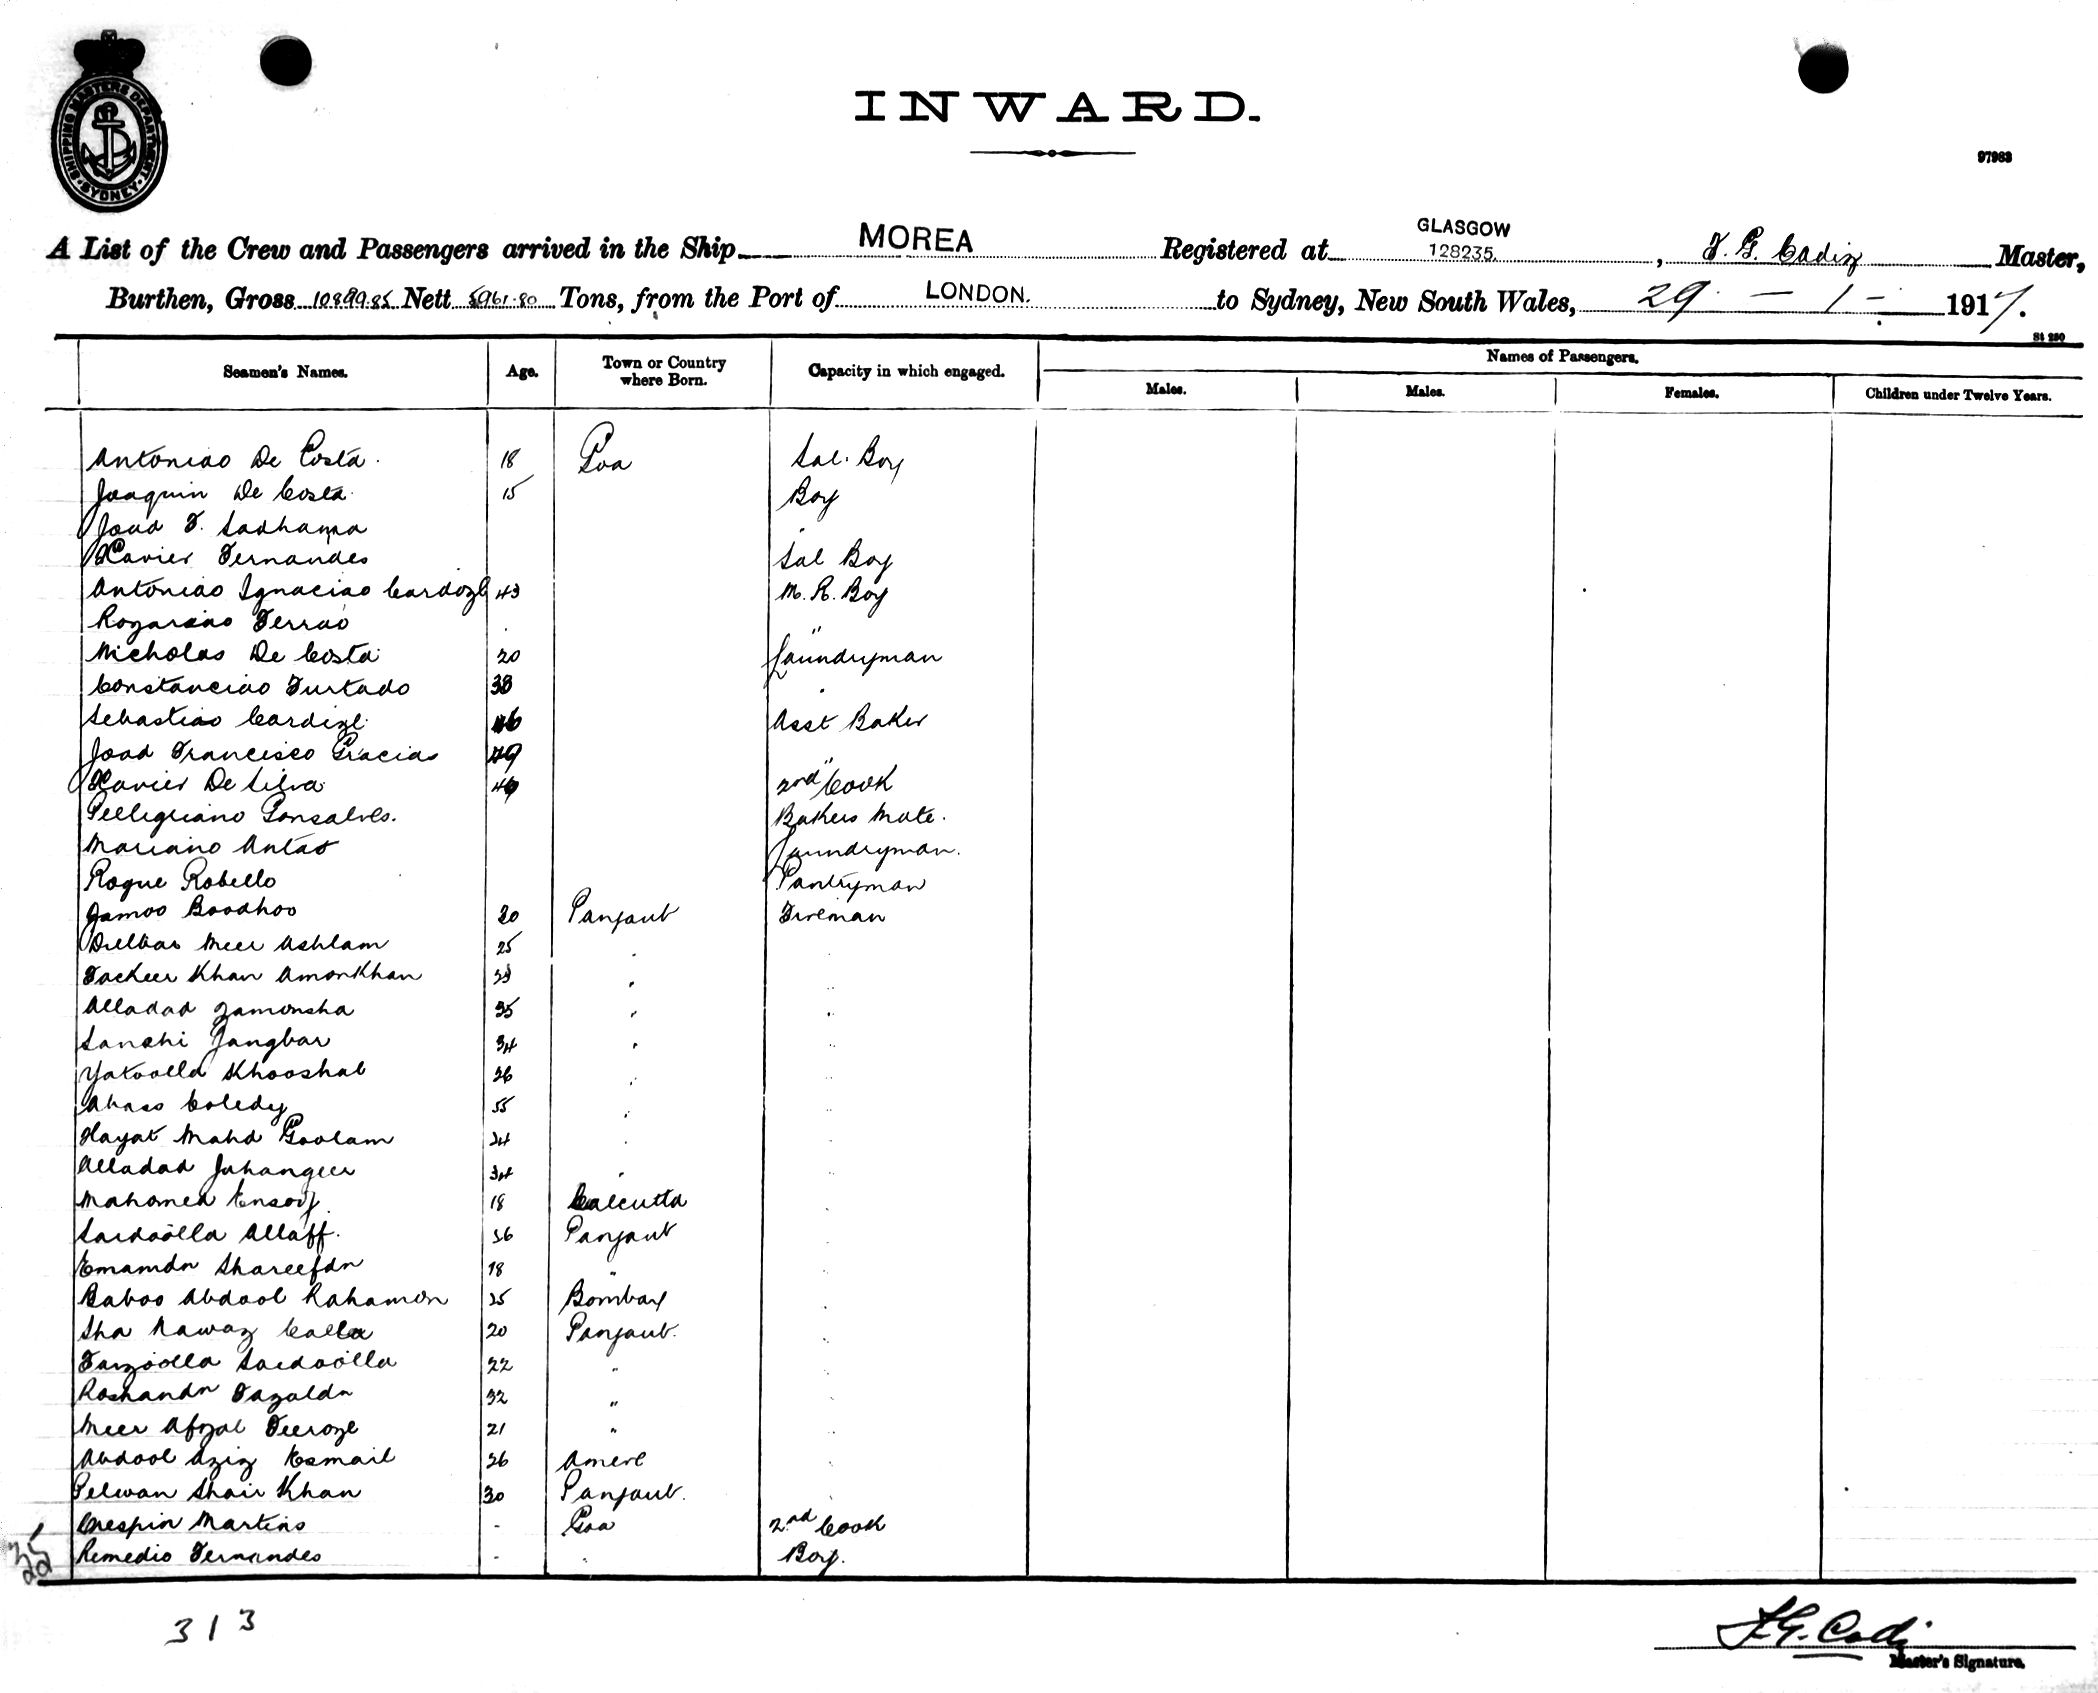 SHIPPING MASTERS DEPARTMENT
SYDNEY
INWARD.
97983
A List of the Crew and Passengers arrived in the Ship MOREA Registered at GLASGOW 128235, F. G. Cadiz Master,
Burthen, Gross 10899.85 Nett 5961.80 Tons, from the Port of LONDON. to Sydney, New South Wales, 29 - 1 - 1917.
St 280
Seamen's Names. Age. Town or Country where Born. Capacity in which engaged. Names of Passengers.
Males. Males. Females. Children under Twelve Years.
Antoniao De Costa. 18 Goa Sal. Boy
Joaquin De Costa. 15 Boy
Joad F. Sadhama
Xavier Fernandes Sal Boy
Antoniao Ignaciao Cardoze 43 M. R. Boy
Rozariao Ferrao "
Nicholas De Costa 20 Laundryman
Constanciao Furtado 38 "
Sebastiao Cardize Asst Baker
Joad Francisco Gracias "
Xavier De Silva 2nd Cook
Pellegriano Gonsalves. Bakers Mate.
Mariano Antao Laundryman.
Roque Robello Pantryman
Jamoo Boodhoo 20 Panjaub Fireman
Dilbar Meer Ashlam 25 " "
Fackeer Khan Amonkhan " "
Alladad Zamonsha 35 " "
Sanchi Jangbar 34 " "
Yakoolla Khooshal 26 " "
Abass Coledy 55 " "
Hayat Mahd Goolam 24 " "
Alladad Jahangeer 34 " "
Mahomed Ensoof 18 Calcutta "
Saidoolla Allaff. 36 Panjaub "
Emamdn Shareefdn 18 " "
Baboo Abdool Rahamon 25 Bombay "
Sha Nawaz Calla 20 Panjaub. "
Faizoolla Saidoolla 22 " "
Roshandn Fazaldn 32 " "
Meer Afzal Feeroze 21 " "
Abdool Aziz Esmail 26 Amere "
Pelwan Shair Khan 30 Panjaub. "
Crespin Martins - Goa 2nd Cook
Remedio Fernandes - " Boy.
35
313
F. G. Cadiz
Master's Signature.